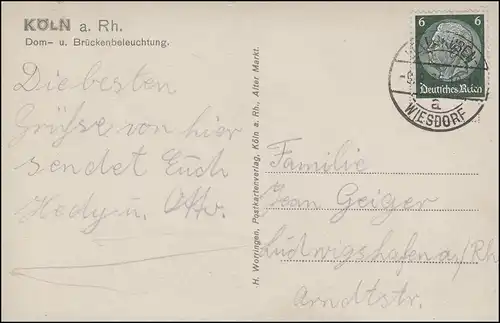 KÖLN a. Rh.
Dom- u. Brückenbeleuchtung.
Die besten
Grüße von hier
sendet Euch
Hedy u. Otto.
H. Worringen, Postkartenverlag, Köln a. Rh., Alter Markt.
6 6
Deutsches Reich
a
WIESDORF
Familie
Jean Geiger
Ludwigshafen a/Rh
Arndtstr.